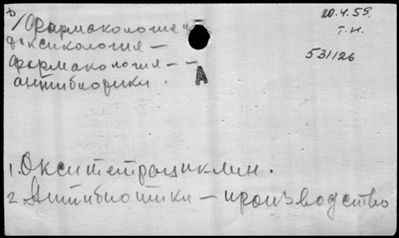 "Фармакология и
токсикология –
фармакология –
антибиотики.
20.4.55.
Т.Н.
531126
А
1. Окситетрациклин.
2. Антибиотики – производство